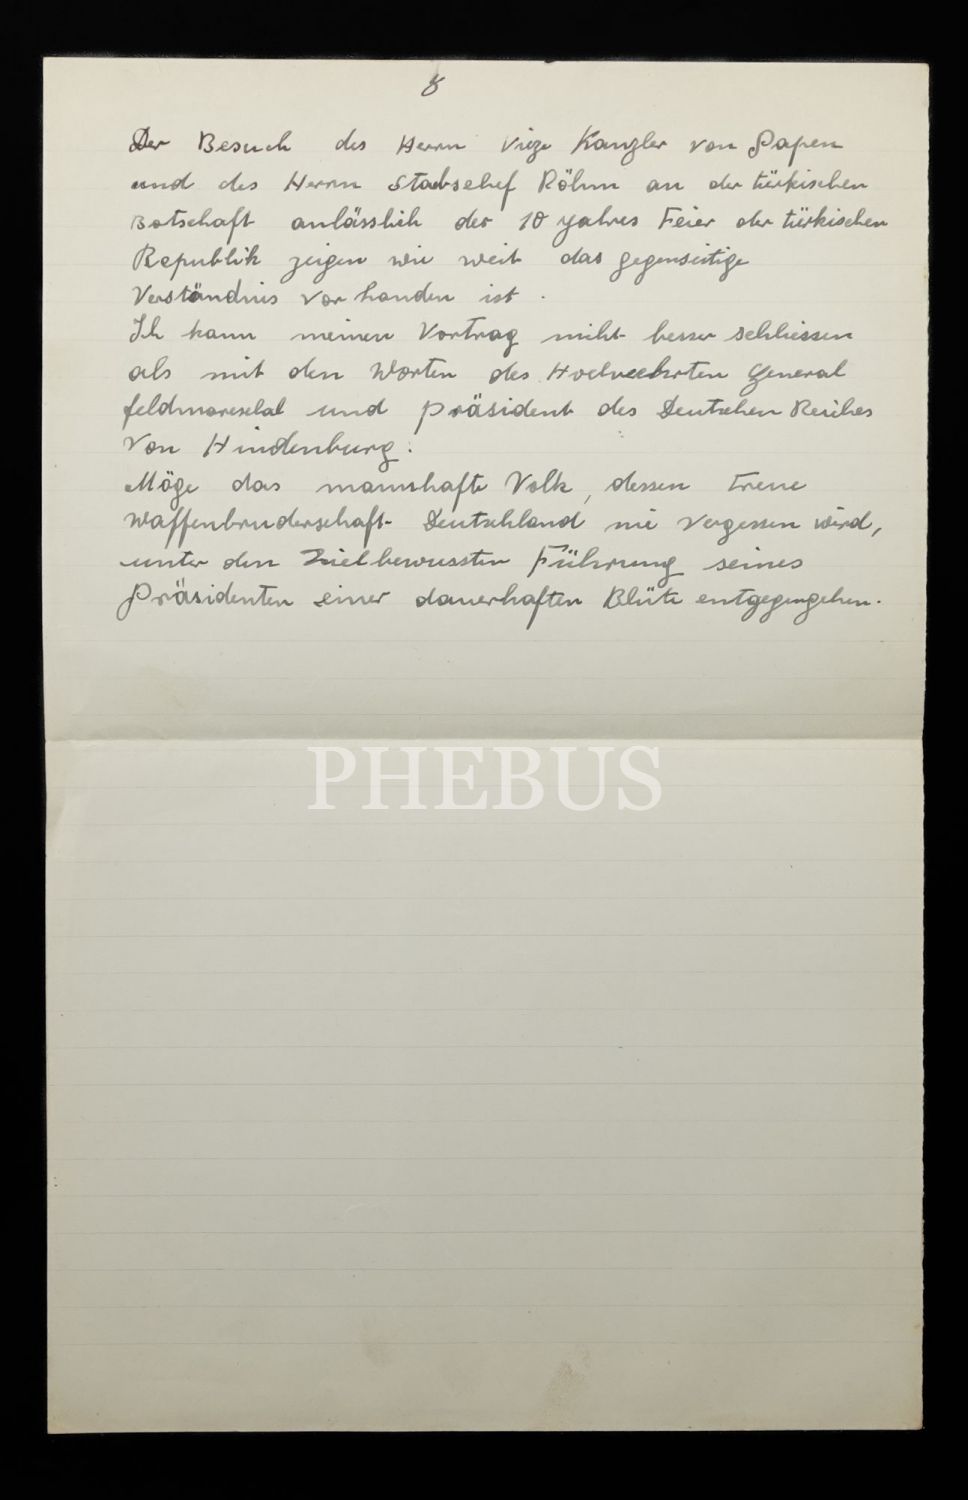 8
Der Besuch des Herrn Vize Kanzler von Papen
und des Herrn Stabschef Röhm an der türkischen
Botschaft anlässlich der 10 yahres Feier der türkischen
Republik zeigen wie weit das gegenseitige
Verständnis vorhanden ist.
Ich kann meinen Vortrag nicht besser schliessen
als mit den Worten des Hochverehrten General
feldmareschal und präsident des Deutschen Reiches
Von Hindenburg:
Möge das mannhafte Volk, dessen treue
Waffenbruderschaft Deutschland nie vergessen wird,
unter den Zielbewussten Führung seines
Präsidenten einer dauerhaften Blüte entgegengehen.
PHEBUS